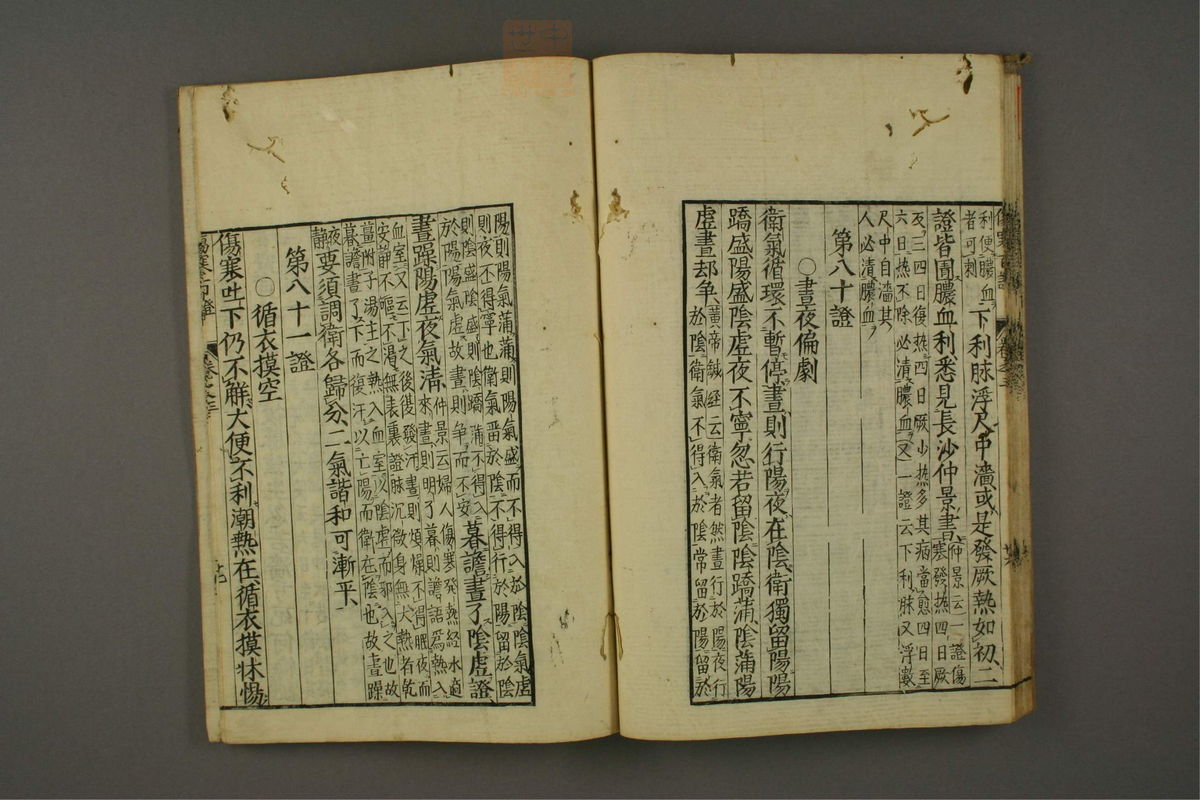 利便膿血者可刺
下利脉浮尺中濇或是發厥熱如初二
證皆圊膿血利悉見長沙仲景書
仲景云一證傷寒發熱四日厥
反三四日復熱四日厥少熱多其病當愈四日至
六日熱不除必清膿血又一證云下利脉又浮數
尺中自濇其
人必清膿血
第八十證
○晝夜偏劇
衛氣循環不暫停晝則行陽夜在陰衛獨留陽陽
蹻盛陽盛陰虛夜不寧忽若留陰陰蹻蒲陰蒲陽
虛晝却争
黄帝鍼經云衛氣者然晝行於陽夜行
於陰衛氣不得入於陰常留於陽留於
陽則陽氣蒲蒲則陽氣盛而不得入於陰陰氣虛
則夜不得寧也衛氣畱於陰不得行於陽留於陰
則陰盛陰盛則陰蹻蒲不得入
於陽陽氣虛故晝則争而不安
暮譫晝了陰虛證
晝躁陽虛夜氣清
仲景云婦人傷寒發熱經水適
來晝則明了暮則譫語爲熱入
血室又云下之後復發汗晝則煩燥不得眠夜而
安静不嘔不渴無表裏證脉沉微身無大熱者乾
薑附子湯主之熱入血室以陰虛而邪入之也故
暮譫晝了下而復汗以亡陽而衛在陰也故晝躁
夜静
要須調衛各歸分二氣諧和可漸平
第八十一證
○循衣摸空
傷寒吐下仍不解大便不利潮熱在循衣摸牀惕